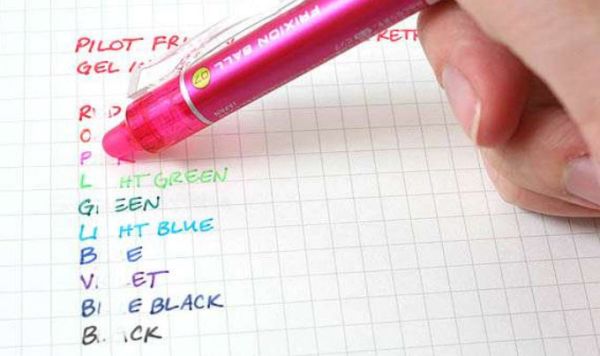 PILOT FR RETR
GEL IN
R D
O
P
L HT GREEN
G EEN
LI HT BLUE
B E
V ET
BL E BLACK
B CK
FRIXION BALL
07